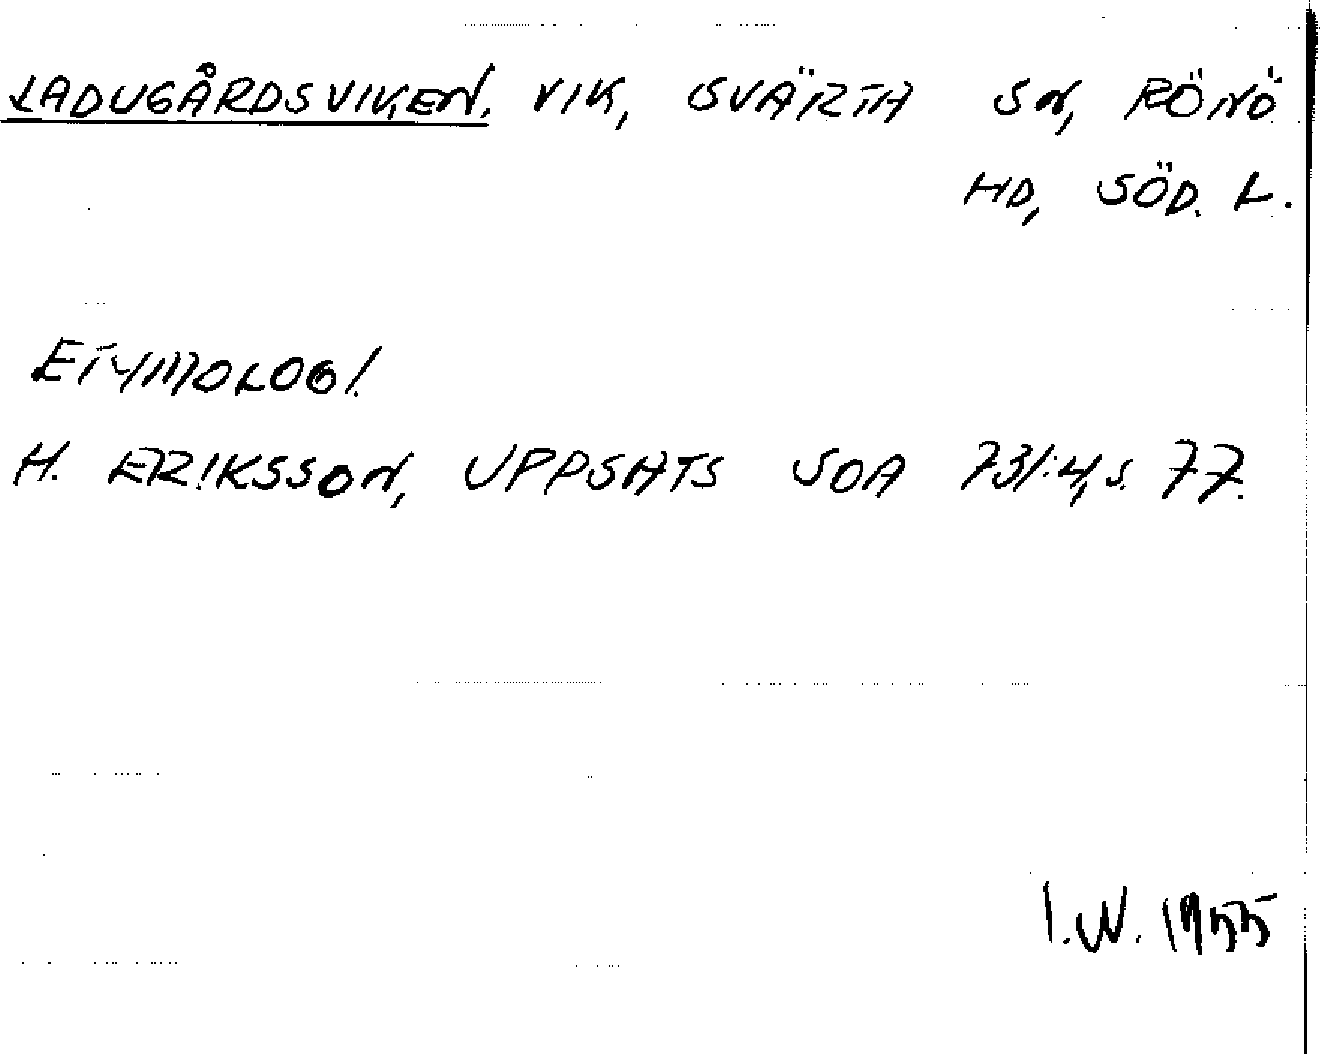 LADUGÅRDSVIKEN. VIK, SVÄRTA SN, RÖNÖ
HD, SÖD. L.
ETYMOLOGI.
H. ERIKSSON, UPPSATS SOA 731:4, S. 77.
I.W. 1955